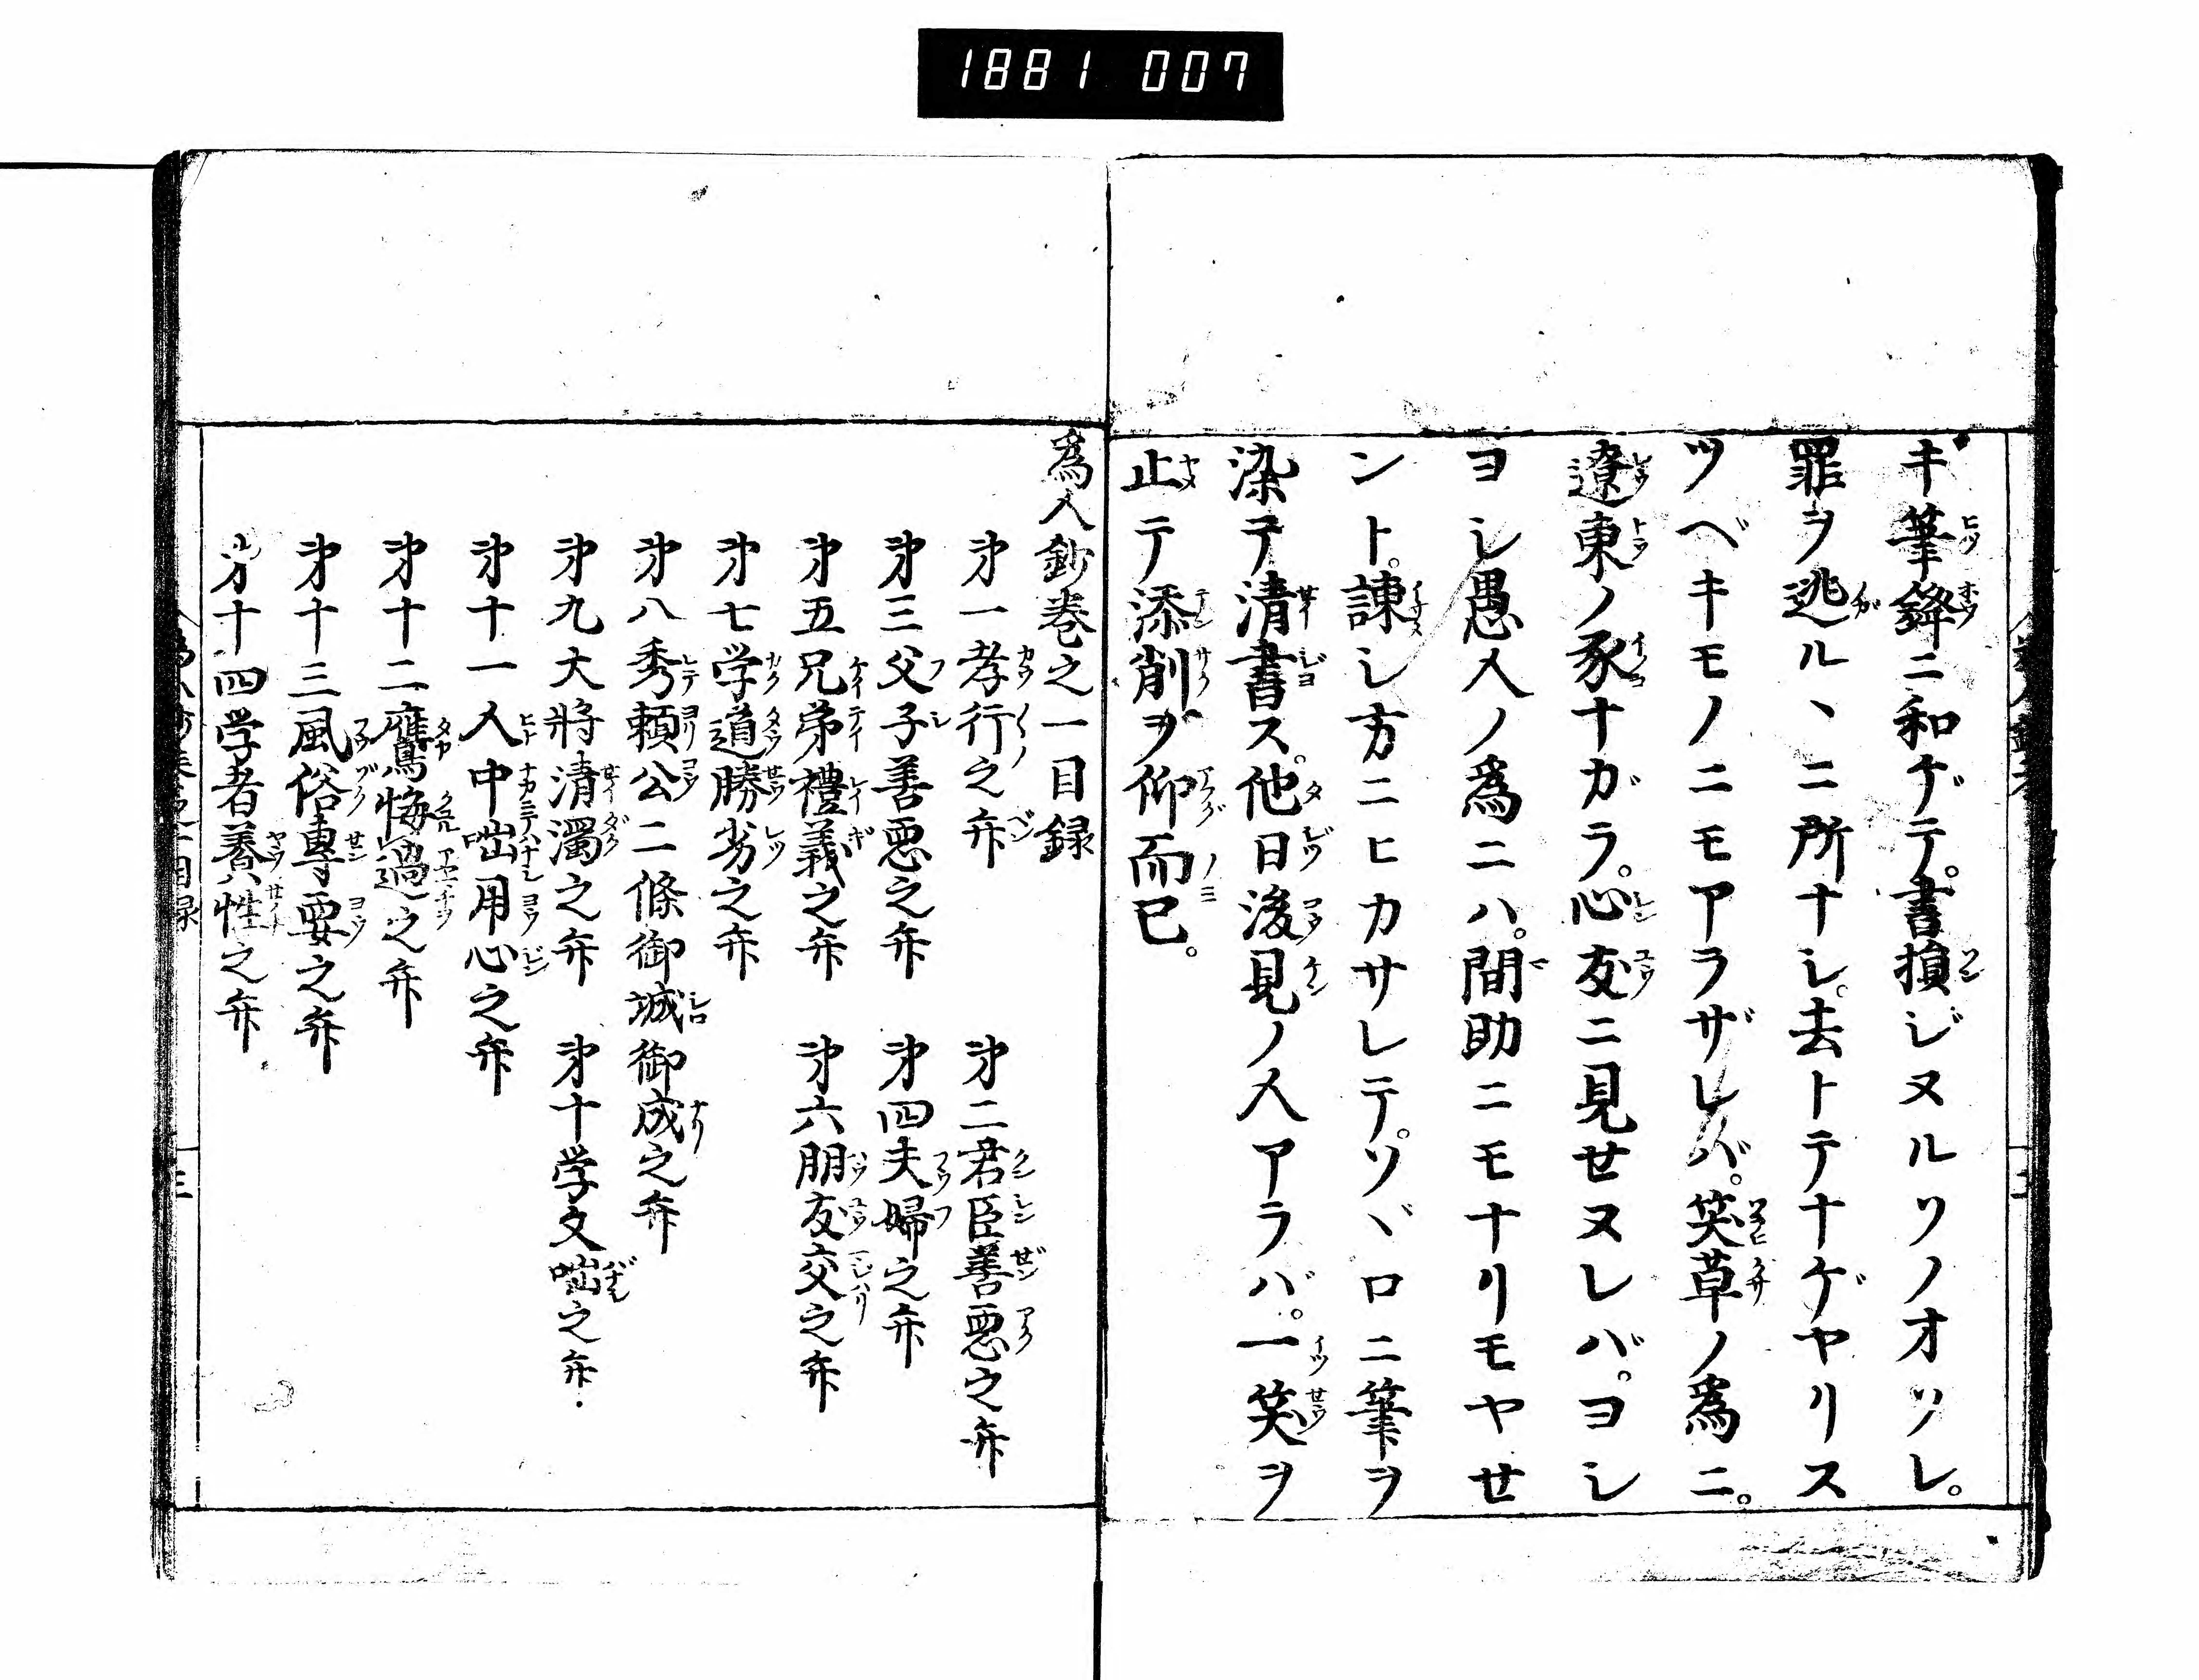 1881 007
キ筆鋒ニ和ゲテ。書損ジヌルソノオソレ。
罪ヲ逃ル丶ニ所ナシ。去トテナゲヤリス
ツベキモノニモアラザレバ。笑草ノ爲ニ。
遼東ノ豕ナガラ。心友ニ見せヌレバ。ヨシ
ヨシ愚人ノ爲ニハ。間助ニモナリモヤせ
ント。諌シ方ニヒカサレテ。ソヾロニ筆ヲ
染テ清書ス。他日後見ノ人アラバ。一笑ヲ
止テ添削ヲ仰而已。
爲人鈔巻之一目録
第一孝行之弁 第二君臣善悪之弁
第三父子善悪之弁 第四夫婦之弁
第五兄弟禮義之弁 第六朋友交之弁
第七学道勝劣之弁
第八秀頼公二條御城御成之弁
第九大將清濁之弁 第十学文咄之弁
第十一人中咄用心之弁
第十二鷹悔過之弁
第十三風俗專要之弁
第十四学者養性之弁